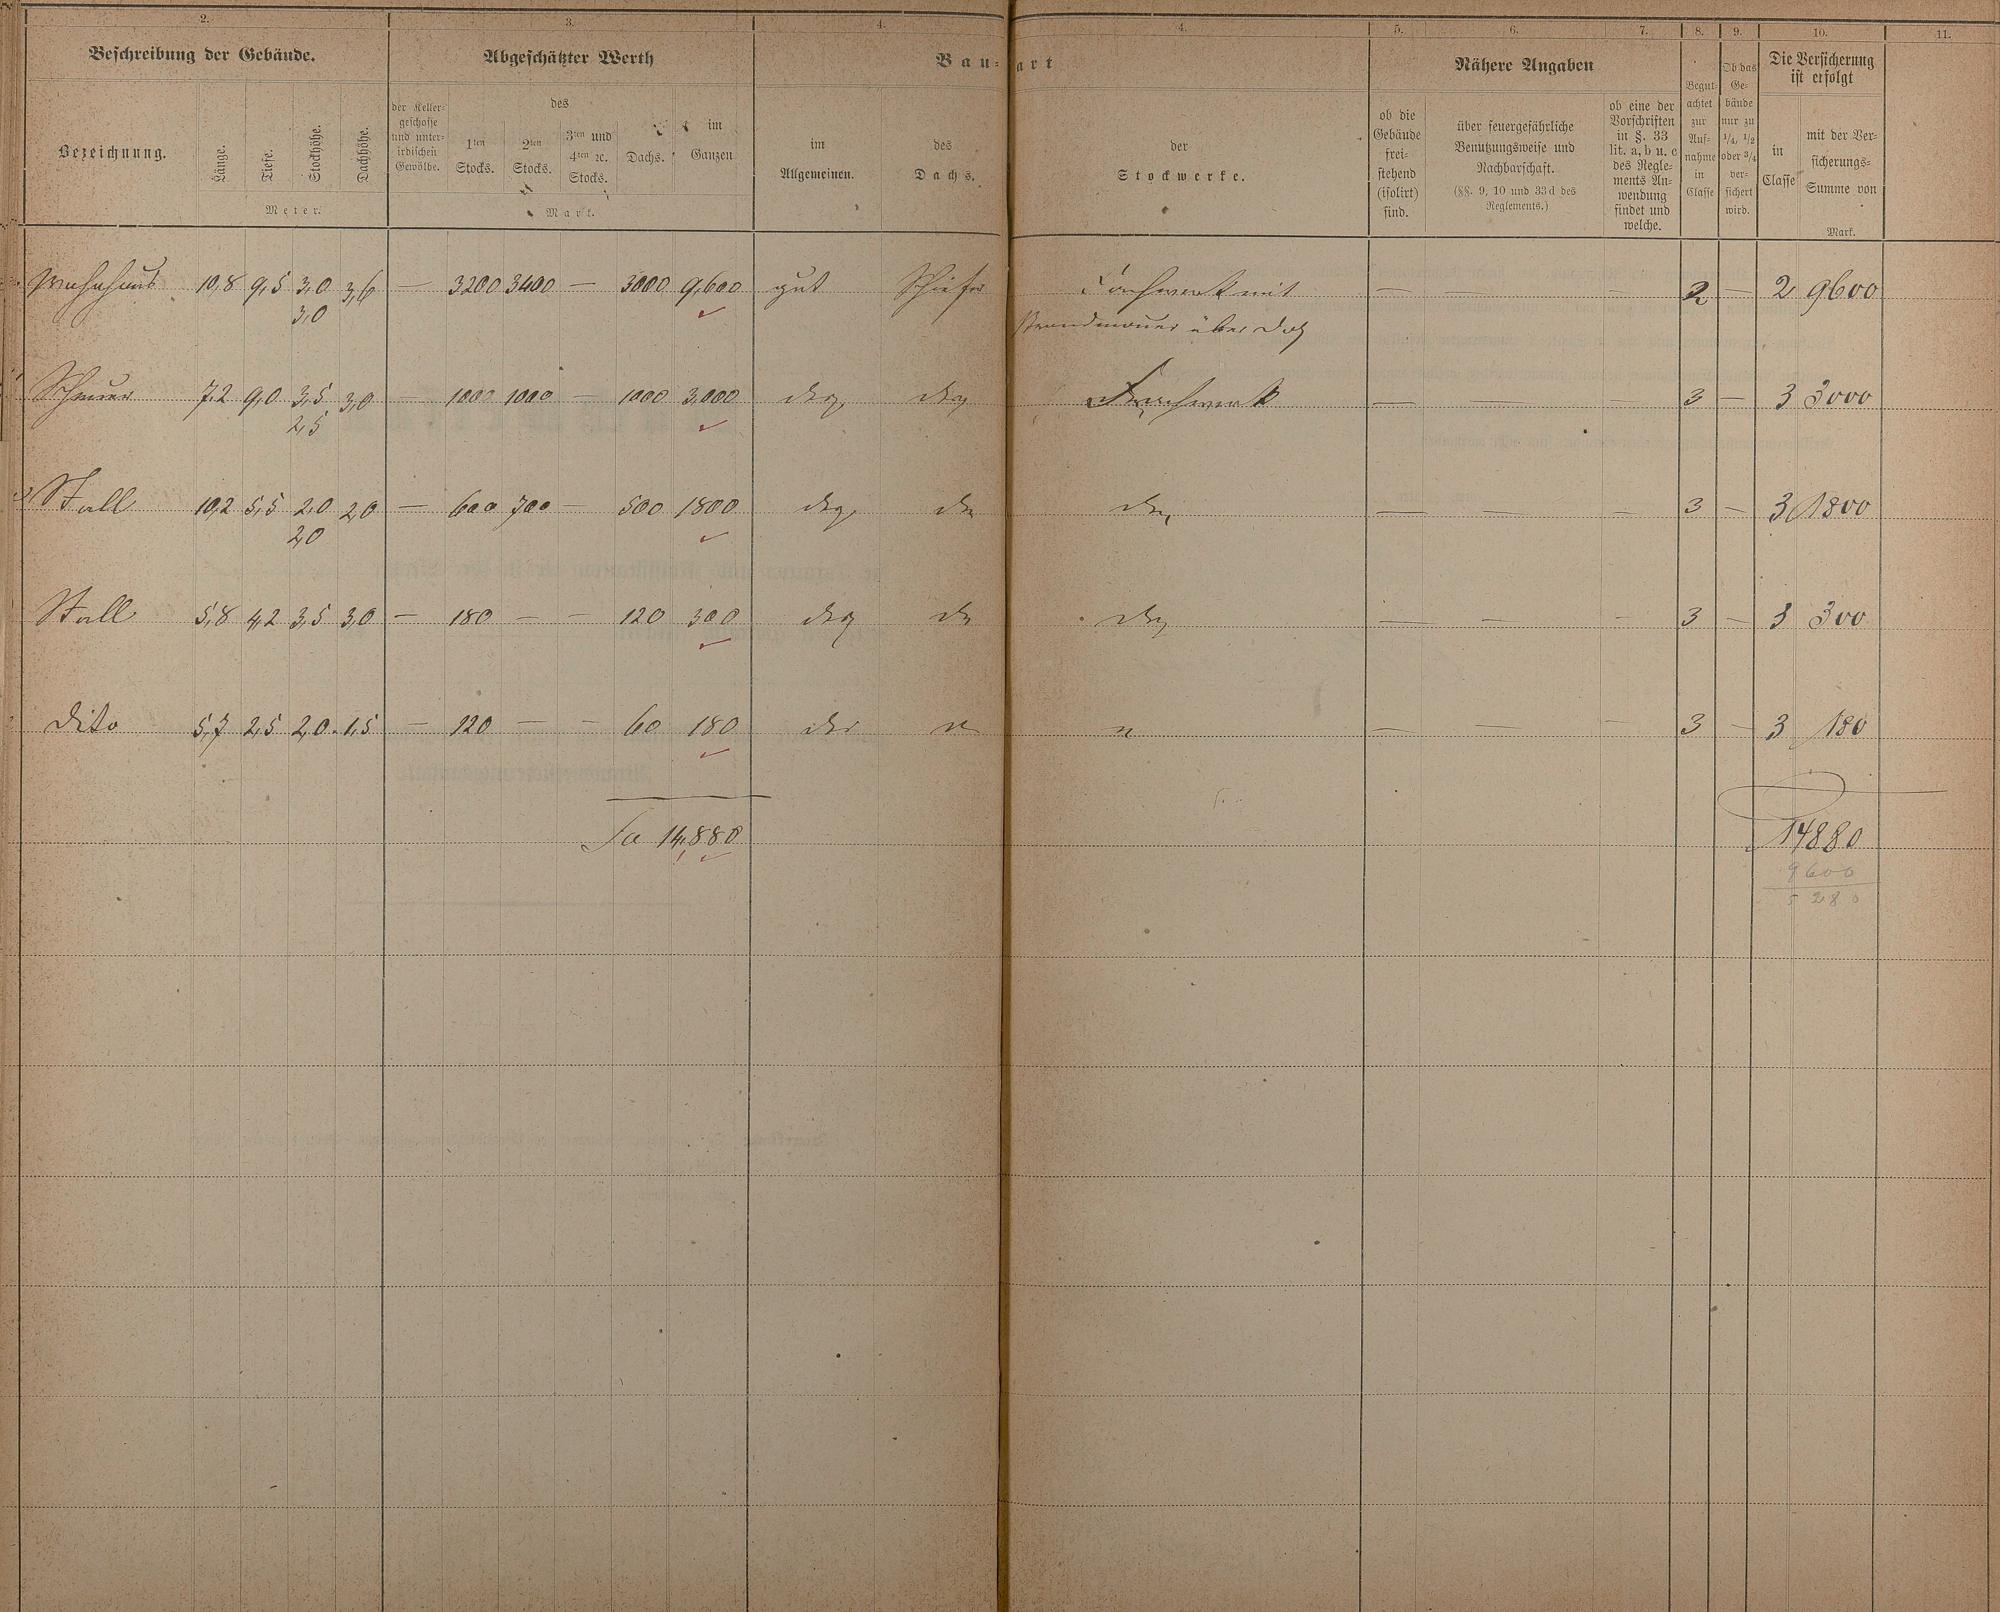 2. 3. 4. 4. 5. 6. 7. 8. 9. 10. 11.
Beschreibung der Gebäude. Abgeschätzter Werth Bau= art Nähere Angaben Die Versicherung
ist erfolgt
Bezeichnung.
Länge. Tiefe. Stockhöhe. Dachhöhe.
Meter.
der Keller=
geschosse
und unter=
irdischen
Gewölbe.
des
1ten
Stocks.
2ten
Stocks.
3ten und
4ten ec.
Stocks.
Dachs.
im
Ganzen
Mark.
im
Allgemeinen.
des
Dachs.
der
Stockwerke.
ob die
Gebäude
frei=
stehend
(isolirt)
sind.
über feuergefährliche
Benutzungsweise und
Nachbarschaft.
(§§. 9, 10 und 33d des
Reglements.)
ob eine der
Vorschriften
in §. 33
lit. a, b u. c
des Regle=
ments An=
wendung
findet und
welche.
Begut=
achtet
zur
Auf=
nahme
in
Classe
Ob das
Ge=
bäude
nur zu
1/4, 1/2
oder 3/4
ver=
sichert
wird.
in
Classe
mit der Ver=
sicherungs=
Summe von
Mark.
Wohnhaus 10,8 9,5 3,0 3,6 — 3200 3400 — 3000 9,600 gut Schiefer Fachwerk mit — — — 2 — 2 9600
3,0 Brandmauer über
Scheuer 7,2 9,0 3,5 3,0 — 1000 1000 — 1000 3,000 Fachwerk — — — 3 — 3 3000
2,5
Stall 10,2 5,5 2,0 2,0 — 600 700 — 500 1800 — — — 3 — 3 1800
2,0
Stall 5,8 4,2 3,5 3,0 — 180 — — 120 300 — — — 3 — 3 300
Dito 5,7 2,5 2,0 1,5 — 120 — — 60 180 — — — 3 — 3 180
Sa 14,880 14880
9600
5280